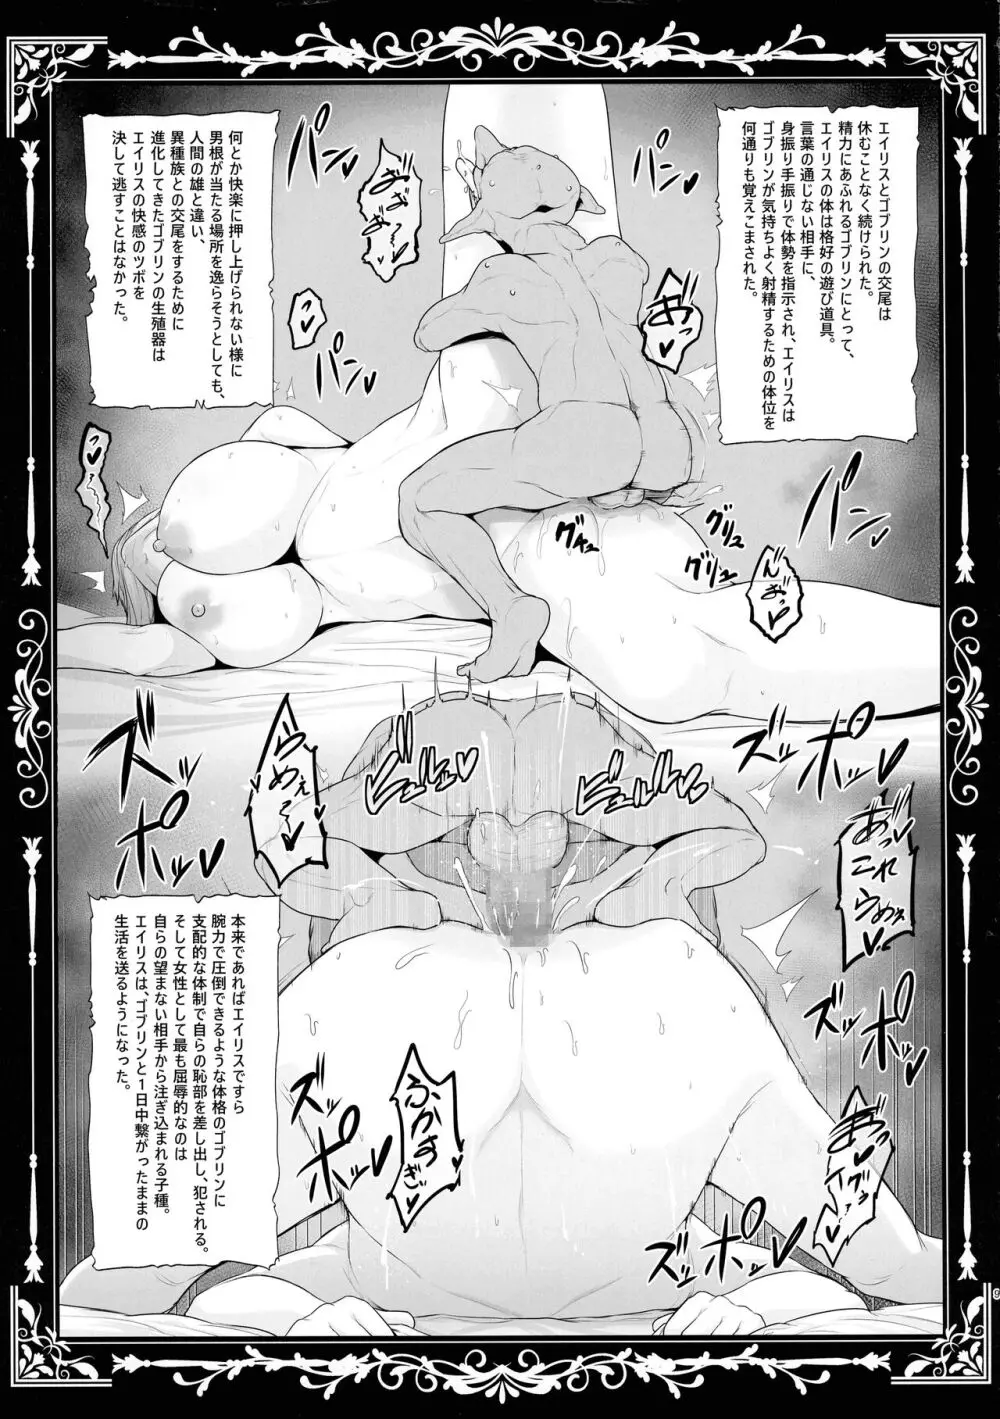 エイリスとゴブリンの交尾は
休むことなく続けられた。
精力にあふれるゴブリンにとって、
エイリスの体は格好の遊び道具。
言葉の通じない相手に、
身振り手振りで体勢を指示され、エイリスは
ゴブリンが気持ちよく射精するための体位を
何通りも覚えこまされた。
パンッ
パンッ
あ゛っ
パンッ
パンッ
何とか快楽に押し上げられない様に
男根が当たる場所を逸らそうとしても、
人間の雄と違い、
異種族との交尾をするために
進化してきたゴブリンの生殖器は
エイリスの快感のツボを
決して逃すことはなかった。
グリュ
グリュ
んおっ
ズッ
ポッ
ビュルルルッ
ビュルルッ
らめぇ~
ズッ
ポッ
あっ
これ
らめぇ
本来であればエイリスですら
腕力で圧倒できるような体格のゴブリンに
支配的な体制で自らの恥部を差し出し、犯される。
そして女性として最も屈辱的なのは
自らの望まない相手から注ぎ込まれる子種。
エイリスは、ゴブリンと1日中繋がったままの
生活を送るようになった。
ズッ
ポッ
ふかすぎっ
ズッ
ポッ
ズッ
ポッ
9